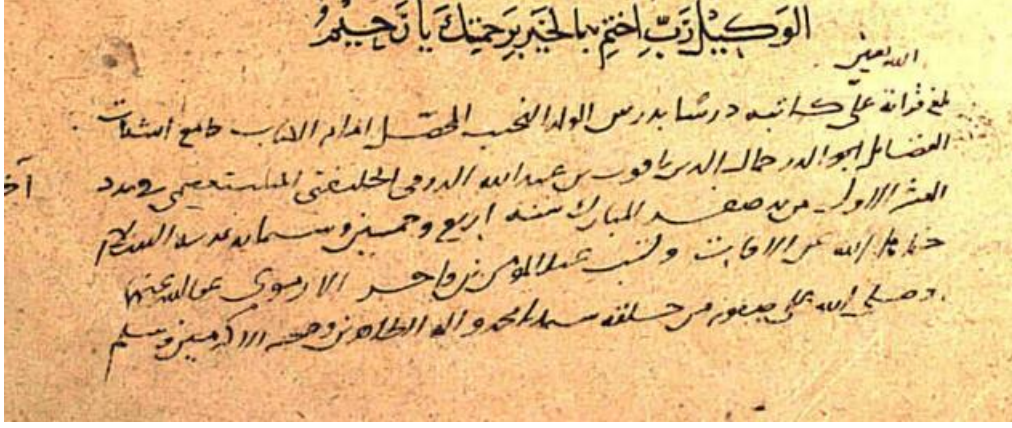 الوَكِيْلُ رَبِّ اخْتِمْ بِالْخَيْرِ بِرَحْمَتِكَ يَا رَحِيْمُ
الله يعيني
بلغ قراءة على كاتبه درسا بدرس الولد النجيب المحصل امام الكتاب جامع اشتات
الفضائل ابو الدر جمال الدين ياقوت بن عبد الله الرومي الخليفتي المستعصمي في مدد
العشر الاول من صفر المبارك سنة اربع وخمسين وستمايه بمدينة السلام
حماها الله من الافات وكتب عبد المومن بن فاخر الارموي عفا الله عنهما
وصلى الله على صفوته من خلقه سيدنا محمد واله الطاهرين وصحبه الاكرمين وسلم